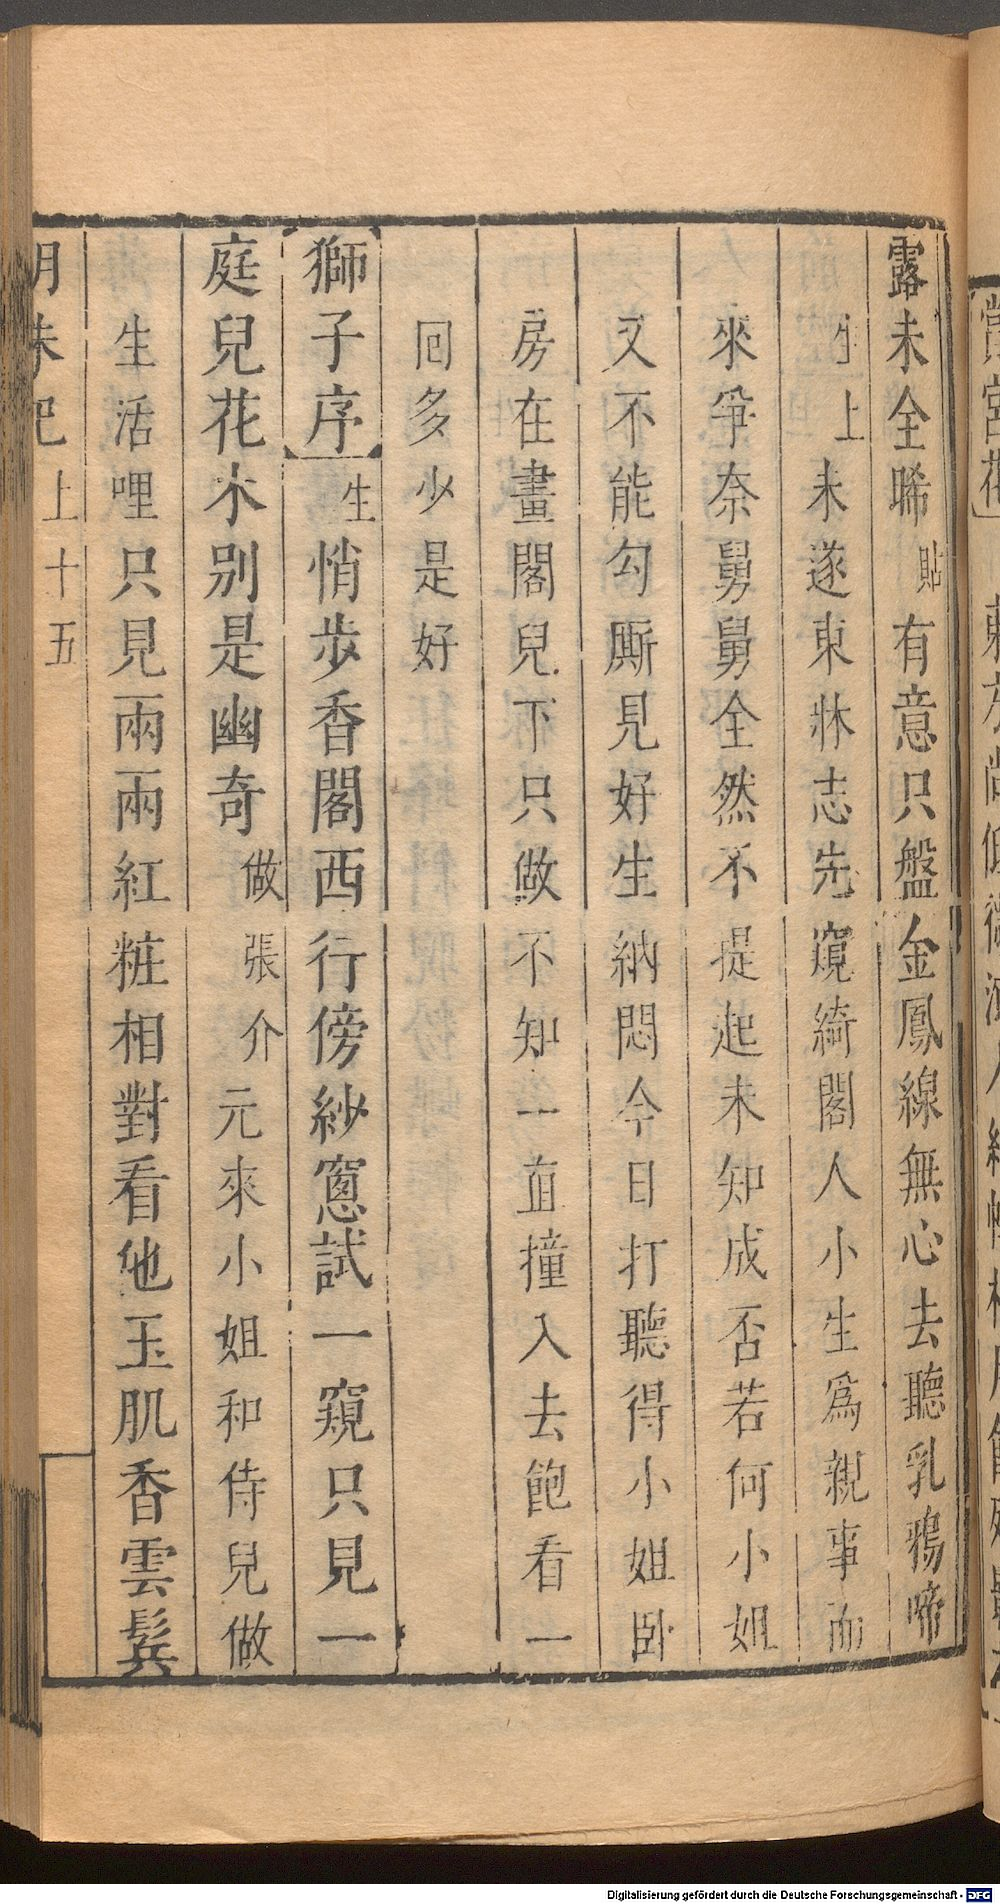 露未全晞貼有意只盤金鳳線無心去聽乳鴉啼
生上未遂東牀志先窺綺閣人小生爲親事而
來爭奈舅舅全然不提起未知成否若何小姐
又不能勾厮見好生納悶今日打聽得小姐卧
房在畫閣兒下只做不知一直撞入去飽看一
回多少是好
獅子序生悄步香閣西行傍紗窻試一窺只見一
庭兒花木別是幽奇做張介元來小姐和侍兒做
生活哩只見兩兩紅粧相對看他玉肌香雲鬂
明珠記上十五
Digitalisierung gefördert durch die Deutsche Forschungsgemeinschaft - DFG